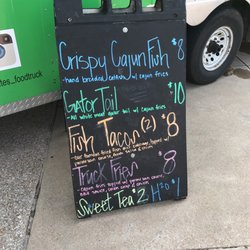 tes_foodtruck
Crispy Cajun Fish $8
-hand breaded catfish w/ cajun fries
Gator Tail $10
- all white meat gator tail w/ cajun fries
Fish Tacos (2) $8
Truck Fries $8
Sweet Tea $2 H2O $1